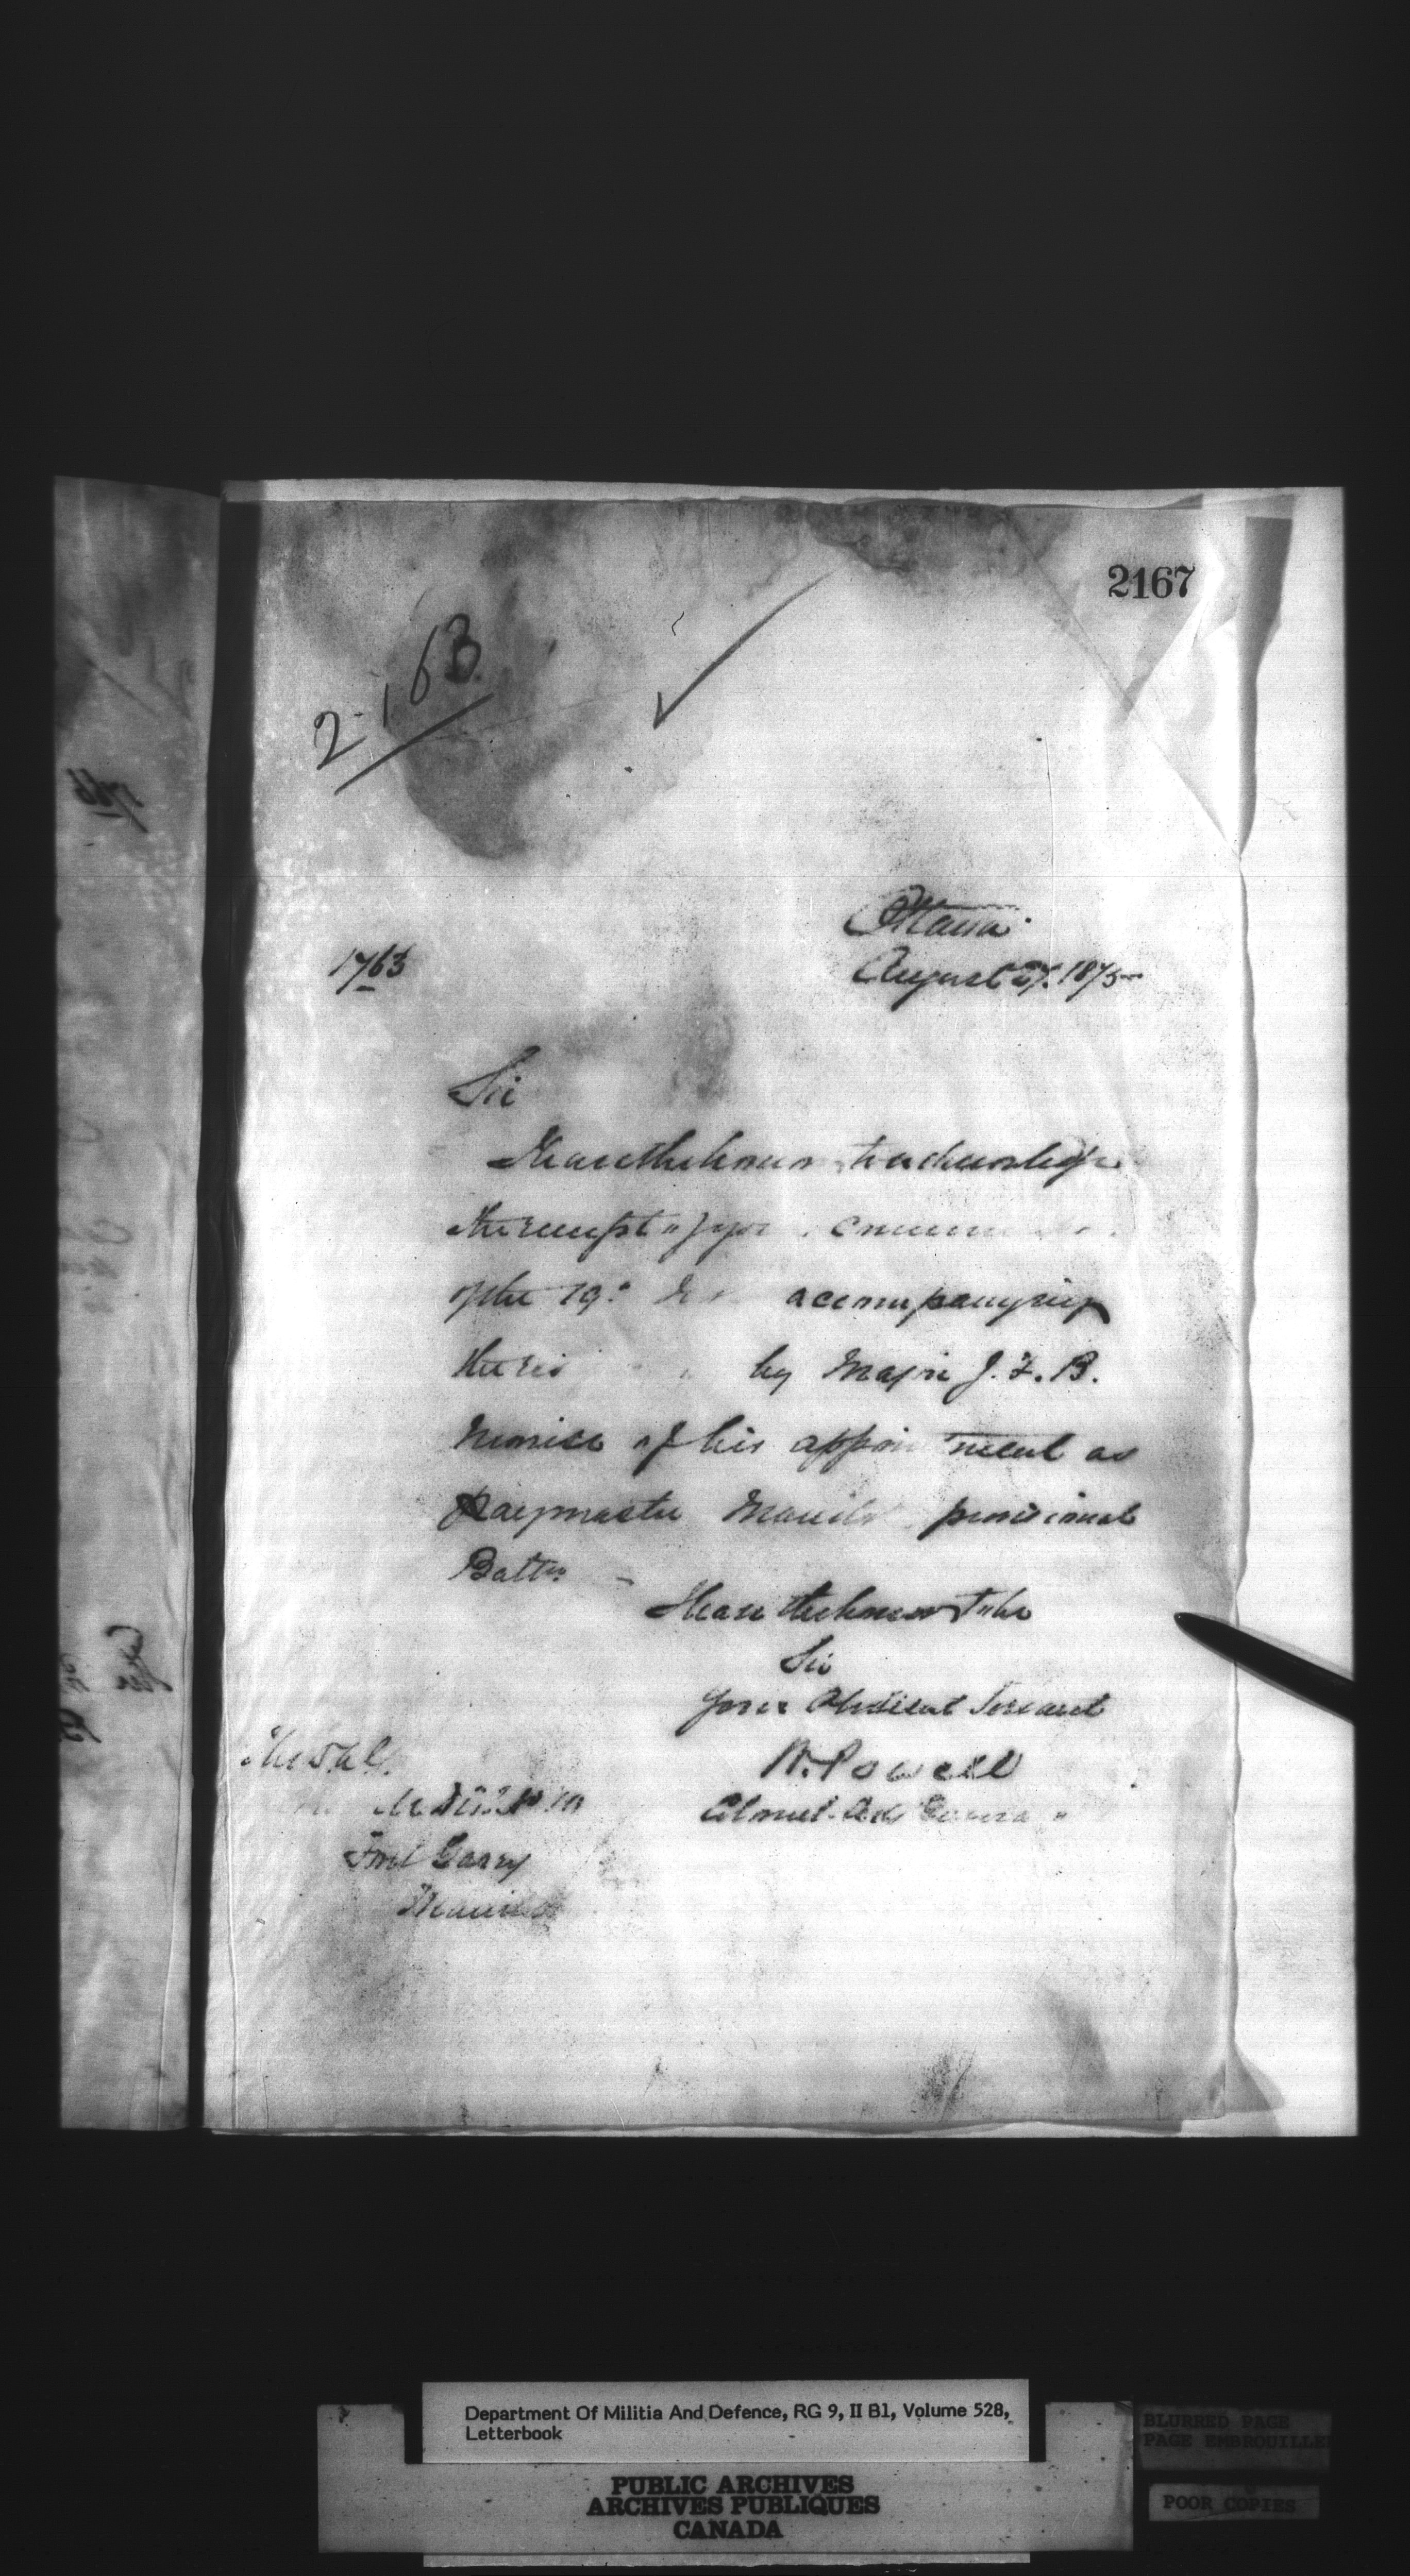 2167
2163
Ottawa
1763
August 27. 1875
Sir
I have the honour to acknowledge
the receipt of your
of the 19th accompanying
the by Major J. F. B.
Morice of his appointment as
Paymaster Manitoba provisional
Battn
I have the honour to be
Sir
Your Obedient Servant
W. Powell
Colonel. Adj Genera
The D.A.G.
M. Dist No 10
Fort Garry
Manitoba
Department Of Militia And Defence, RG 9, II B1, Volume 528,
Letterbook
BLURRED PAGE
PAGE EMBROUILLE
PUBLIC ARCHIVES
ARCHIVES PUBLIQUES
CANADA
POOR COPIES